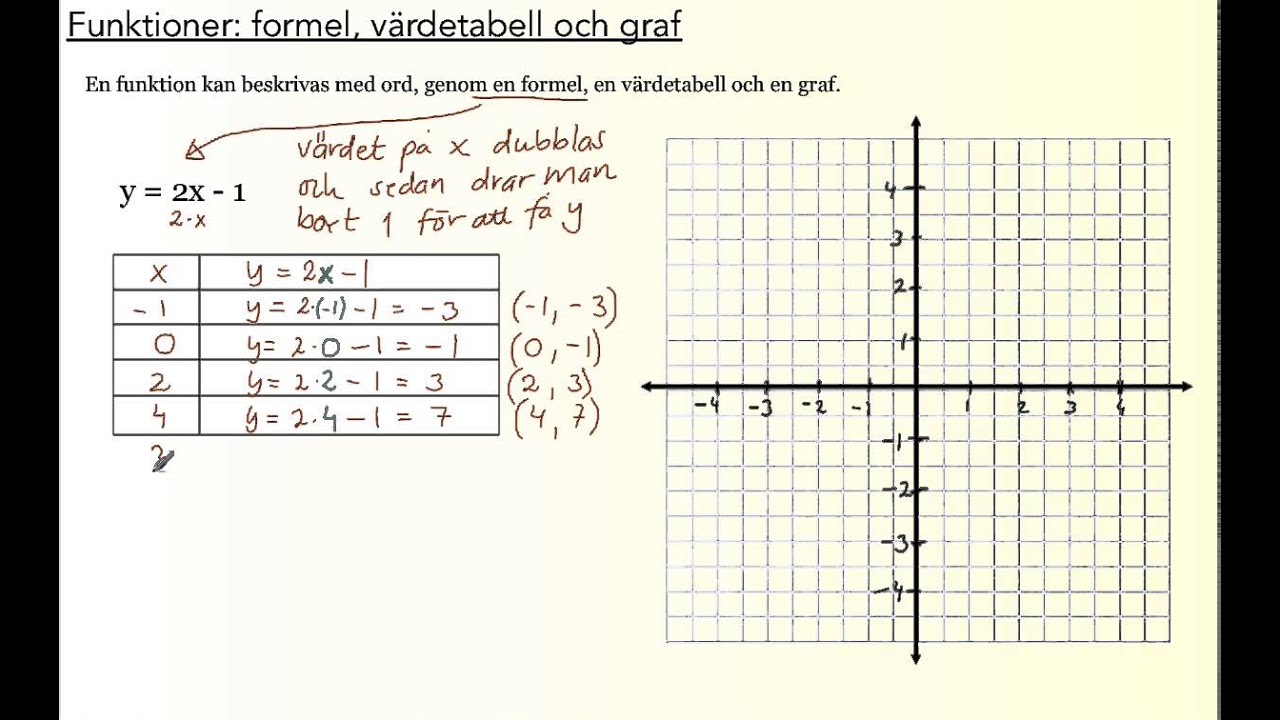 Funktioner: formel, värdetabell och graf
En funktion kan beskrivas med ord, genom en formel, en värdetabell och en graf.
värdet på x dubblas
och sedan drar man
bort 1 för att få y
y = 2x - 1
2·x
x y = 2x - 1
-1 y = 2·(-1) - 1 = -3 (-1, -3)
0 y = 2·0 - 1 = -1 (0, -1)
2 y = 2·2 - 1 = 3 (2, 3)
4 y = 2·4 - 1 = 7 (4, 7)
4
3
2
1
-4 -3 -2 -1 1 2 3 4
-1
-2
-3
-4